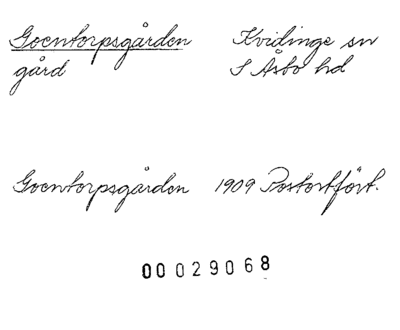 Goentorpsgården Kvidinge sn
gård S Åsbo hd
Goentorpsgården 1909 Postortfört.
00029068